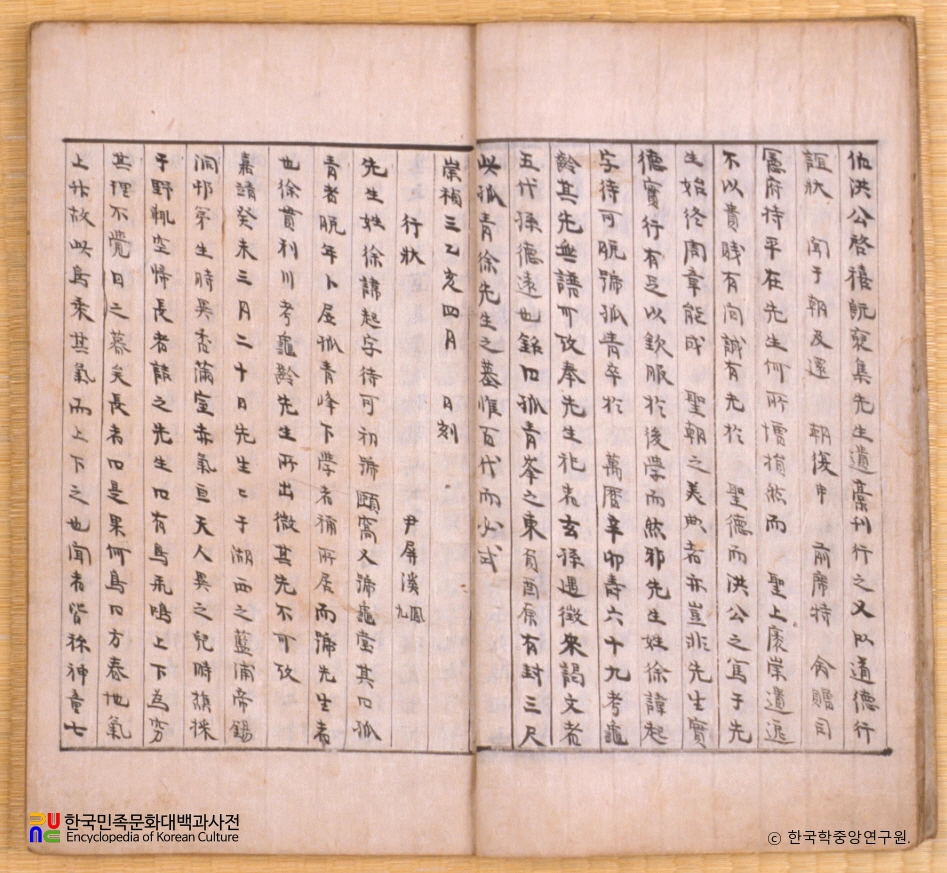 仇洪公啓禧旣裒集先生遺藁刊行之又以道德行
誼狀 聞于朝及還 朝復申 前席特 命贈司
憲府持平在先生何所增損然而 聖上褒崇遺逸
不以貴賤有間誠有光於 聖德而洪公之篤于先
生始終周章能成 聖朝之美典者亦豈非先生實
德實行有足以欽服於後學而然邪先生姓徐諱起
字待可號孤青卒於 萬曆辛卯壽六十九考龜
齡其先無譜可攷奉先生祀者玄孫遇徵來謁文者
五代孫德遠也銘曰孤青峯之東負酉原有封三尺
此孤青徐先生之墓惟百代而必式
崇禎三乙亥四月 日刻
行狀 尹屏溪鳳九
先生姓徐諱起字待可初號頤窩又號龜堂其曰孤
青者晚年卜居孤青峰下學者稱所居而號先生者
也徐貫利川考龜齡先生所出微其先不可攷
嘉靖癸未三月二十日先生生于湖西之藍浦帝錫
洞邨第生時異香滿室赤氣亘天人異之兒時嬉採
于野輒空歸長者詰之先生曰有鳥飛鳴上下為窮
其理不覺日之暮矣長者曰是果何鳥曰方春地氣
上升故此鳥乘其氣而上下之也聞者皆稱神童七
한국민족문화대백과사전
Encyclopedia of Korean Culture
© 한국학중앙연구원.